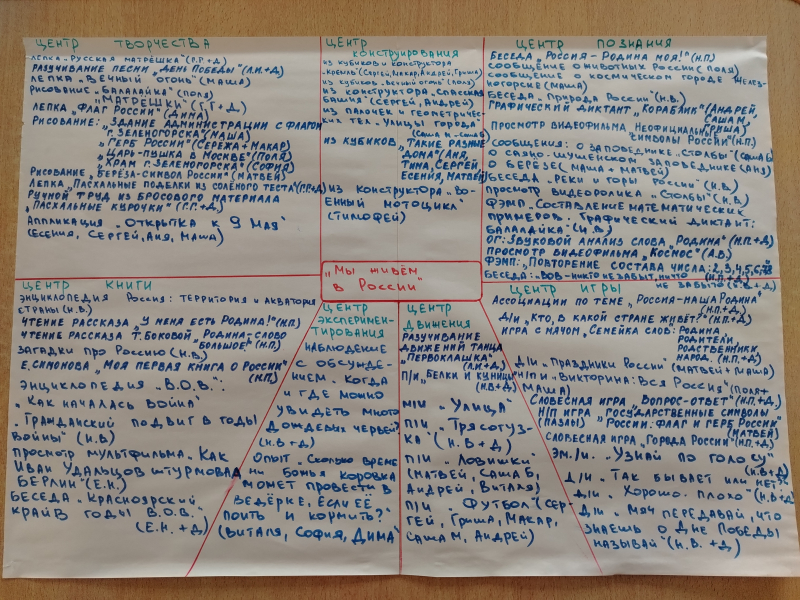 ЦЕНТР ТВОРЧЕСТВА
-ЛЕПКА „РУССКАЯ МАТРЁШКА“ (Г.Г+Д)
РАЗУЧИВАНИЕ ПЕСНИ „ДЕНЬ ПОБЕДЫ“ (Л.И.+Д)
ЛЕПКА „ВЕЧНЫЙ ОГОНЬ“ (МАША)
РИСОВАНИЕ „БАЛАЛАЙКА“ (ПОЛЯ)
„МАТРЁШКИ“ (Г.Г+Д)
ЛЕПКА „ФЛАГ РОССИИ“ (ДИМА)
РИСОВАНИЕ: „ЗДАНИЕ АДМИНИСТРАЦИИ С ФЛАГОМ
Г. ЗЕЛЕНОГОРСКА“ (МАША)
„ГЕРБ РОССИИ“ (СЕРЁЖА+МАКАР)
„ЦАРЬ-ПУШКА В МОСКВЕ“ (ПОЛЯ)
„ХРАМ Г. ЗЕЛЕНОГОРСКА“ (СОФИЯ)
РИСОВАНИЕ „БЕРЁЗА-СИМВОЛ РОССИИ“ (МАТВЕЙ)
ЛЕПКА „ПАСХАЛЬНЫЕ ПОДЕЛКИ ИЗ СОЛЁНОГО ТЕСТА“ (Г.Г+Д)
РУЧНОЙ ТРУД ИЗ БРОСОВОГО МАТЕРИАЛА
„ПАСХАЛЬНЫЕ КУРОЧКИ“ (Г.Г+Д.)
АППЛИКАЦИЯ „ОТКРЫТКА К 9 МАЯ“
(ЕСЕНИЯ, СЕРГЕЙ, АНЯ, МАША)
ЦЕНТР
КОНСТРУИРОВАНИЯ
ИЗ КУБИКОВ И КОНСТРУКТОРА
„КРЕМЛЬ“ (СЕРГЕЙ, МАКАР, АНДРЕЙ, ГРИША)
ИЗ КУБИКОВ „ВЕЧНЫЙ ОГОНЬ“ (ПОЛЯ)
ИЗ КОНСТРУКТОРА „СПАССКАЯ
БАШНЯ“ (СЕРГЕЙ, АНДРЕЙ)
ИЗ ПАЛОЧЕК И ГЕОМЕТРИЧЕС-
КИХ ТЕЛ „УЛИЦЫ ГОРОДА“
ИЗ КУБИКОВ „ТАКИЕ РАЗНЫЕ
ДОМА“ (АНЯ,
ТИМА, СЕРГЕЙ
ЕСЕНИЯ, МАТВЕЙ)
ИЗ КОНСТРУКТОРА „ВО-
ЕННЫЙ МОТОЦИКЛ“
(ТИМОФЕЙ)
ЦЕНТР ПОЗНАНИЯ
БЕСЕДА „РОССИЯ - РОДИНА МОЯ!“ (Н.П.)
СООБЩЕНИЕ О ЖИВОТНЫХ РОССИИ (ПОЛЯ)
СООБЩЕНИЕ О КОСМИЧЕСКОМ ГОРОДЕ ЖЕЛЕЗ-
НОГОРСКЕ (МАША)
БЕСЕДА „ПРИРОДА РОССИИ“ (Н.В.)
ГРАФИЧЕСКИЙ ДИКТАНТ „КОРАБЛИК“ (АНДРЕЙ,
САША М,
ГРИША)
ПРОСМОТР ВИДЕОФИЛЬМА „НЕОФИЦИАЛЬНЫЕ
СИМВОЛЫ РОССИИ“ (Н.П)
СООБЩЕНИЯ: О ЗАПОВЕДНИКЕ „СТОЛБЫ“ (САША Б)
О САЯНО-ШУШЕНСКОМ ЗАПОВЕДНИКЕ (АНЯ)
О БЕРЁЗЕ (МАША + МАТВЕЙ)
БЕСЕДА „РЕКИ И ГОРЫ РОССИИ“ (Н.В.)
ПРОСМОТР ВИДЕОРОЛИКА „СТОЛБЫ“ (Н.В.)
ФЭМП „СОСТАВЛЕНИЕ МАТЕМАТИЧЕСКИХ
ПРИМЕРОВ: ГРАФИЧЕСКИЙ ДИКТАНТ:
БАЛАЛАЙКА“ (Н.В)
ОГ: ЗВУКОВОЙ АНАЛИЗ СЛОВА „РОДИНА“ (Н.П+Д)
ПРОСМОТР ВИДЕОФИЛЬМА „КОСМОС“ (А.В.)
ФЭМП: „ПОВТОРЕНИЕ СОСТАВА ЧИСЛА: 2,3,4,5,6,7
БЕСЕДА: ВОВ-НИКТО НЕ ЗАБЫТ, НИЧТО
НЕ ЗАБЫТО
„МЫ ЖИВЁМ
В РОССИИ“
ЦЕНТР КНИГИ
ЭНЦИКЛОПЕДИЯ РОССИЯ: ТЕРРИТОРИЯ И АКВАТОРИЯ
СТРАНЫ (Н.В.)
ЧТЕНИЕ РАССКАЗА „У МЕНЯ ЕСТЬ РОДИНА!“ (Н.П.)
ЧТЕНИЕ РАССКАЗА Т. БОКОВОЙ „РОДИНА-СЛОВО
БОЛЬШОЕ“ (Н.П)
ЗАГАДКИ ПРО РОССИЮ (Н.В)
Е. СИМОНОВА „МОЯ ПЕРВАЯ КНИГА О РОССИИ“
(Н.П)
ЭНЦИКЛОПЕДИЯ „В.О.В.“:
„КАК НАЧАЛАСЬ ВОЙНА“
„ГРАЖДАНСКИЙ ПОДВИГ В ГОДЫ
ВОЙНЫ“ (Н.В)
ПРОСМОТР МУЛЬТФИЛЬМА „КАК
ИВАН УДАЛЬЦОВ ШТУРМОВАЛ
БЕРЛИН“ (Е.Н.)
БЕСЕДА „КРАСНОЯРСКИЙ
КРАЙ В ГОДЫ В.О.В.“
(Е.Н. +Д)
ЦЕНТР
ЭКСПЕРИМЕН-
ТИРОВАНИЯ
НАБЛЮДЕНИЕ
С ОБСУЖДЕ-
НИЕМ „КОГДА
И ГДЕ МОЖНО
УВИДЕТЬ МНОГО
ДОЖДЕВЫХ ЧЕРВЕЙ“
(Н.В+Д)
ОПЫТ „СКОЛЬКО ВРЕМЕ
НИ БОЖЬЯ КОРОВКА
МОЖЕТ ПРОВЕСТИ В
ВЕДЁРКЕ, ЕСЛИ ЕЁ
ПОИТЬ И КОРМИТЬ?“
(ВИТАЛЯ, СОФИЯ, ДИМА)
ЦЕНТР
ДВИЖЕНИЯ
РАЗУЧИВАНИЕ
ДВИЖЕНИЙ ТАНЦА
„ПЕРВОКЛАШКА“
(Л.И+Д)
П/И „БЕЛКИ И КУНИЦЫ“
(Н.В+Д)
М/И „УЛИЦА“
П/И „ТРЯСОГУЗ-
КА“ (Н.В+Д)
П/И „ЛОВИШКИ“
(МАТВЕЙ, САША Б,
АНДРЕЙ, ВИТАЛЯ)
П/И „ФУТБОЛ“ (СЕР-
ГЕЙ, ГРИША, МАКАР,
САША М, АНДРЕЙ)
ЦЕНТР ИГРЫ
АССОЦИАЦИИ ПО ТЕМЕ „РОССИЯ-НАША РОДИНА“
(Н.П+Д)
Д/И „КТО, В КАКОЙ СТРАНЕ ЖИВЁТ?“ (Н.П.+Д)
ИГРА С МЯЧОМ „СЕМЕЙКА СЛОВ: РОДИНА,
РОДИТЕЛИ,
РОДСТВЕННИКИ
НАРОД (Н.П.+Д)
Д/И „ПРАЗДНИКИ РОССИИ“
(МАТВЕЙ+МАША)
Н/П/И „ВИКТОРИНА: ВСЯ РОССИЯ“ (ПОЛЯ+
МАША)
СЛОВЕСНАЯ ИГРА „ВОПРОС-ОТВЕТ“ (Н.П.+Д)
Н/П ИГРА „ГОСУДАРСТВЕННЫЕ СИМВОЛЫ
(ПАЗЛЫ) РОССИИ: ФЛАГ И ГЕРБ РОССИИ“
(МАТВЕЙ)
СЛОВЕСНАЯ ИГРА „ГОРОДА РОССИИ“ (Н.П.+Д)
ЭМ./И. „УЗНАЙ ПО ГОЛОСУ“
(Н.В+Д)
Д/И „ТАК БЫВАЕТ ИЛИ НЕТ?“
Д/И „ХОРОШО-ПЛОХО“ (Н.В+Д)
Д/И „МЯЧ ПЕРЕДАВАЙ, ЧТО
ЗНАЕШЬ О ДНЕ ПОБЕДЫ
НАЗЫВАЙ“ (Н.В. +Д)